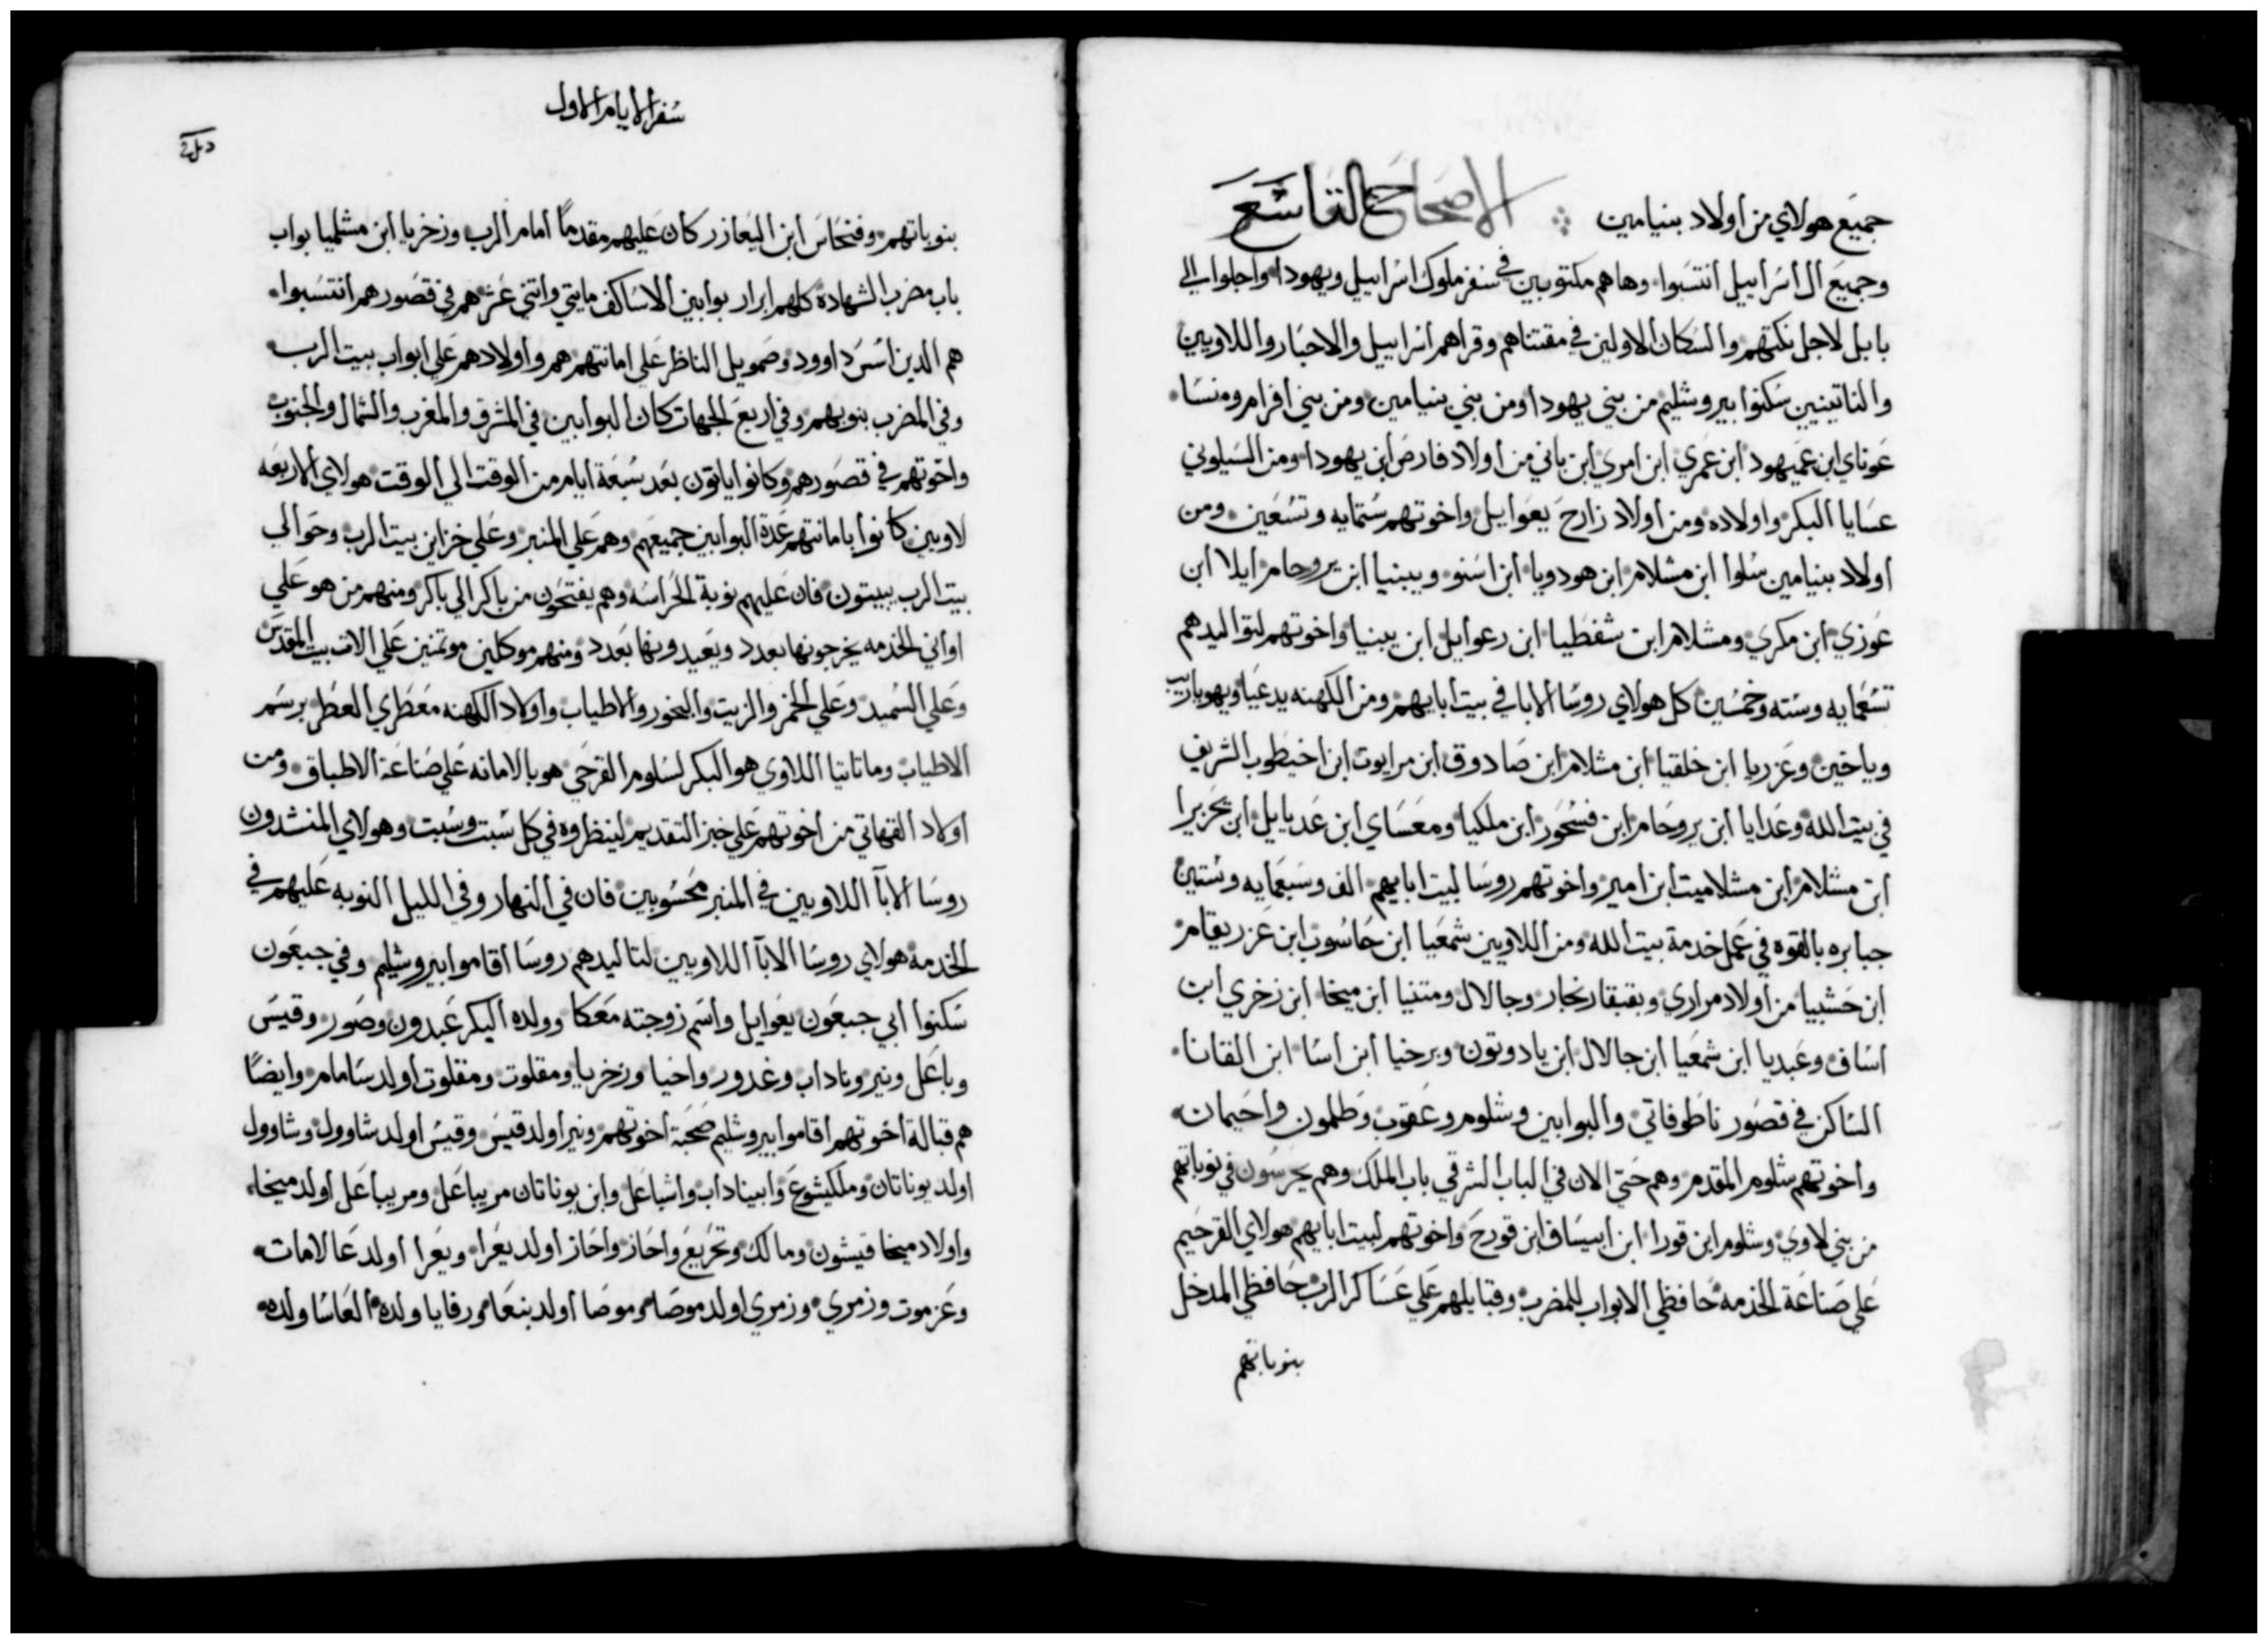 جميع هولاي من أولاد بنيامين الاصحاح التاسع
وجميع ال اسراييل انتسبوا وهاهم مكتوبين في سفر ملوك اسراييل ويهودا واجلوا الي
بابل لاجل نكثهم والسكان الاولين في مقتناهم وقراهم اسراييل والاحبار واللاويين
والناتينيين سكنوا بيروشليم من بني يهودا ومن بني بنيامين ومن بني افرام ومنسا
عوناي ابن عميهود ابن عمري ابن امري ابن باني من اولاد فارص ابن يهودا ومن السيلوني
عسايا البكر واولاده ومن اولاد زارح يعوايل واخوتهم ستمايه وتسعين ومن
اولاد بنيامين سلوا ابن مشلام ابن هودويا ابن اسنو ويبنيا ابن يروحام ايلا ابن
عوزي ابن مكري ومشلام ابن شفطيا ابن رعوايل ابن يبنيا واخوتهم لتواليدهم
تسعمايه وسته وخمسين كل هولاي روسا الابا في بيت ابايهم ومن الكهنه يدعيا ويهوياريب
وياخين وعزريا ابن خلقيا ابن مشلام ابن صادوق ابن مرايوت ابن اخيطوب الشريف
في بيت الله وعدايا ابن يروحام ابن فسحور ابن ملكيا ومعساي ابن عديايل ابن يحزيرا
ابن مشلام ابن مشلاميت ابن امير واخوتهم روسا لبيت ابايهم الف وسبعمايه وستين
جبابره بالقوه في عمل خدمة بيت الله ومن اللاويين شمعيا ابن حاسوب ابن عزريقام
ابن حشبيا من اولاد مراري وبقبقار نجار وجالال ومتنيا ابن ميخا ابن زخري ابن
اساف وعبديا ابن شمعيا ابن جالال ابن يادوتون وبرخيا ابن اسا ابن القانا
الساكن في قصور ناطوفاتي والبوابين وشلوم وعقوب وطلمون واحيمان
واخوتهم شلوم المقدم وهم حتي الان في الباب الشرقي باب الملك وهم يحرسون في نوباتهم
من بني لاوي وشلوم ابن قورا ابن ابيساف ابن قورح واخوتهم لبيت ابايهم هولاي القرحيم
علي صناعة الخدمه حافظي الابواب للمضرب وقبايلهم علي عساكر الرب حافظي المدخل
بنوباتهم
سفر الايام الاول
بنوباتهم وفنحاس ابن اليعازر كان عليهم مقدمًا امام الرب وزخريا ابن مشلميا بواب
باب مضرب الشهادة كلهم ابرار بوابين الاساكف مايتي واتني عشر هم في قصورهم انتسبوا
هم الدين اسس داوود وصمويل الناظر علي امانتهم هم واولادهم علي ابواب بيت الرب
وفي المضرب بنوبهم وفي اربع الجهات كان البوابين في المشرق والمغرب والشمال والجنوب
واخوتهم في قصورهم وكانوا ياتون بعد سبعة ايام من الوقت الي الوقت هولاي الاربعه
لاويين كانوا بامانتهم عدة البوابين جميعهم وهم علي المنبر وعلي خزاين بيت الرب وحوالي
بيت الرب يبيتون فان عليهم نوبة الحراسه وهم يفتحون من باكر الي باكر ومنهم من هو علي
اواني الخدمه يخرجونها بعدد ويعيدونها بعدد ومنهم موكلين موتمنين علي الات بيت المقدس
وعلي السميد وعلي الخمر والزيت والبخور والاطياب واولاد الكهنه معطري العطر برسم
الاطياب وماتاتيا اللاوي هو البكر لسلوم القرحي هو بالامانه علي صناعة الاطباق ومن
اولاد القهاتي من اخوتهم علي خبز التقديم لينظروه في كل سبت وسبت وهولاي المنشدون
روسا الابآ اللاويين في المنبر محسوبين فان في النهار وفي الليل النوبه عليهم في
الخدمه هولاي روسا الابآ اللاويين لتاليدهم روسا اقاموا بيروشليم وفي جبعون
سكنوا ابي جبعون يعوايل واسم زوجته معكا وولده البكر عبدون وصور وقيس
وباعل ونير وناداب وغدور واخيا وزخريا ومقلوت ومقلوت اولد سامام وايضًا
هم قبالة اخوتهم اقاموا بيروشليم صحبة اخوتهم ونير اولد قيس وقيس اولد شاوول وشاوول
اولد يوناتان وملكيشوع وابيناداب واشباعل وابن يوناتان مريباعل ومريباعل اولد ميخا
واولاد ميخا فيشون ومالك وتحريع واحاز واحاز اولد يعرا ويعرا اولد عالامات
وعزموت وزمري وزمري اولد موصا وموصا اولد بنعا ورفايا ولده العاسا ولده